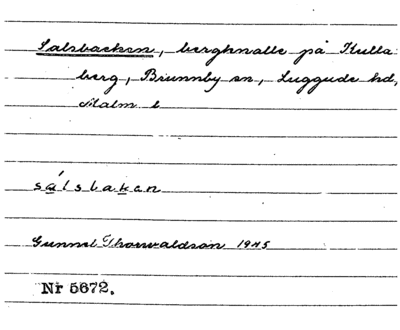 Salsbacken, bergknalle på Kulla-
berg, Brunnby sn, Luggude hd,
Malm. l
sálsbakan
Gunnel Thorwaldson 1945
Nr 5672.